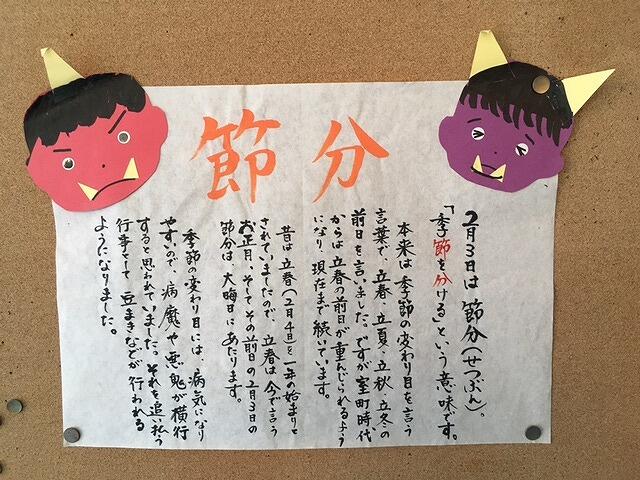 節分
2月3日は 節分(せつぶん)。
「季節を分ける」という意味です。
本来は季節の変わり目を言う
言葉で、立春、立夏、立秋、立冬の
前日を言いました。ですが室町時代
からは立春の前日が重んじられるよう
になり、現在まで続いています。
昔は立春(2月4日)を一年の始まりと
されていましたので、立春は今で言う
お正月、そしてその前日の2月3日の
節分は、大晦日にあたります。
季節の変わり目には、病気になり
やすいので、病魔や悪鬼が横行
すると思われていました。それを追い払う
行事として豆まきなどが行われる
ようになりました。